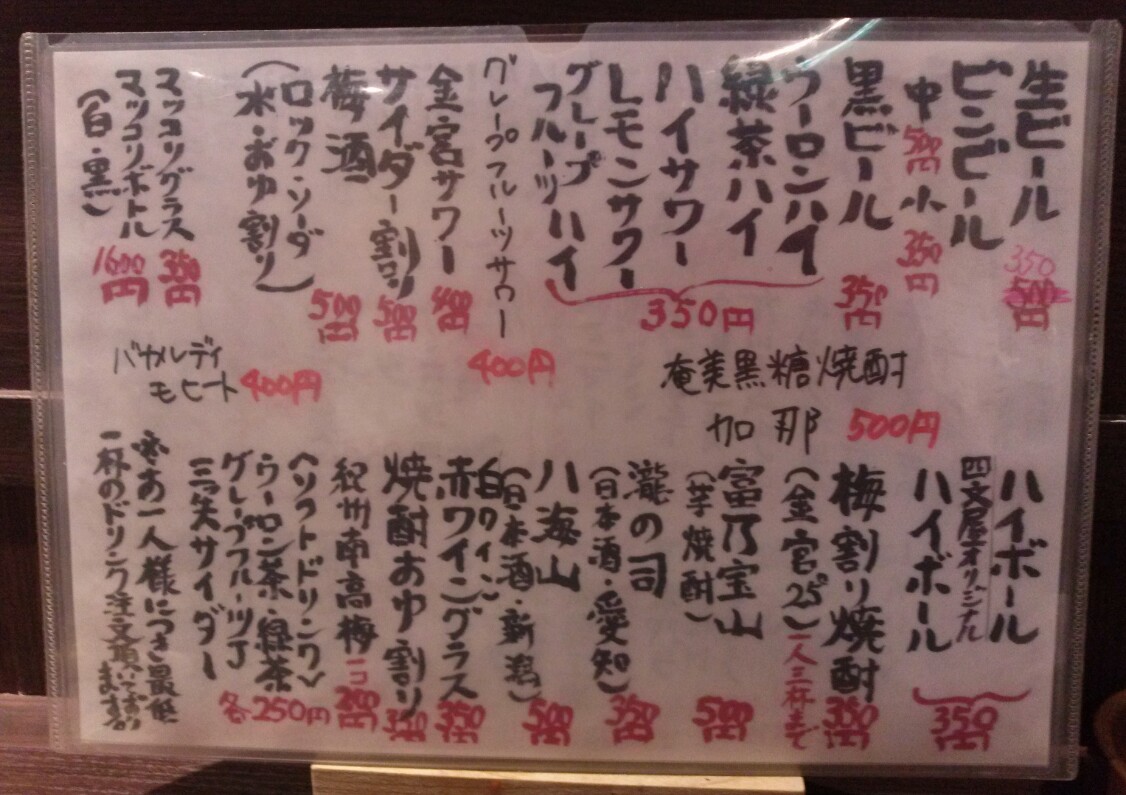 生ビール 350 500円
ビンビール
中500円 小350円
黒ビール 350円
ウーロンハイ
緑茶ハイ
ハイサワー
レモンサワー
グレープ
フルーツハイ
350円
グレープフルーツサワー
400円
金宮サワー 400円
サイダー割り 500円
梅酒 500円
(ロック・ソーダ
水・おゆ割り)
マッコリグラス 350円
マッコリボトル 1600円
(白・黒)
奄美黒糖焼酎
加那 500円
バカルディ
モヒート 400円
ハイボール
四文屋オリジナル
ハイボール
350円
梅割り焼酎 350円
(金宮25°) 一人三杯まで
富乃宝山 500円
(芋焼酎)
瀧の司 350円
(日本酒・愛知)
八海山 500円
(日本酒・新潟)
白ワイン
赤ワイングラス 350円
焼酎おゆ割り 350円
紀州南高梅 一コ 200円
(ソフトドリンク)
ウーロン茶・緑茶
グレープフルーツJ
三ツ矢サイダー
各250円
お一人様につき最低
一杯のドリンク注文頂いております